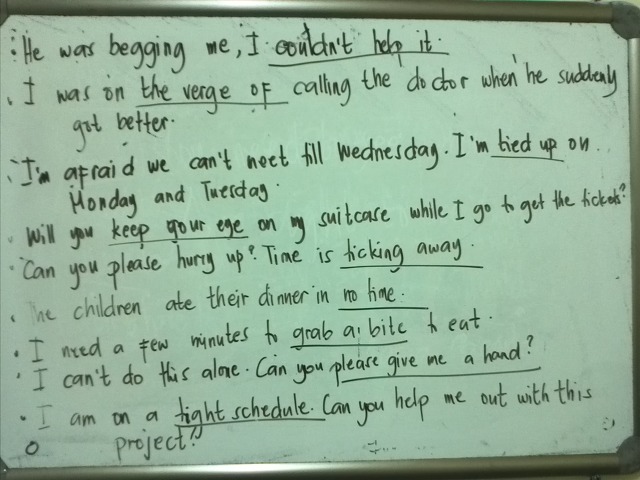 : He was begging me, I couldn't help it.
. I was on the verge of calling the doctor when he suddenly
got better.
. I'm afraid we can't meet till Wednesday. I'm tied up on.
Monday and Tuesday.
. Will you keep your eye on my suitcase while I go to get the tickets?
. Can you please hurry up? Time is ticking away.
. The children ate their dinner in no time.
. I need a few minutes to grab a bite to eat.
. I can't do this alone. Can you please give me a hand?
. I am on a tight schedule. Can you help me out with this
project?